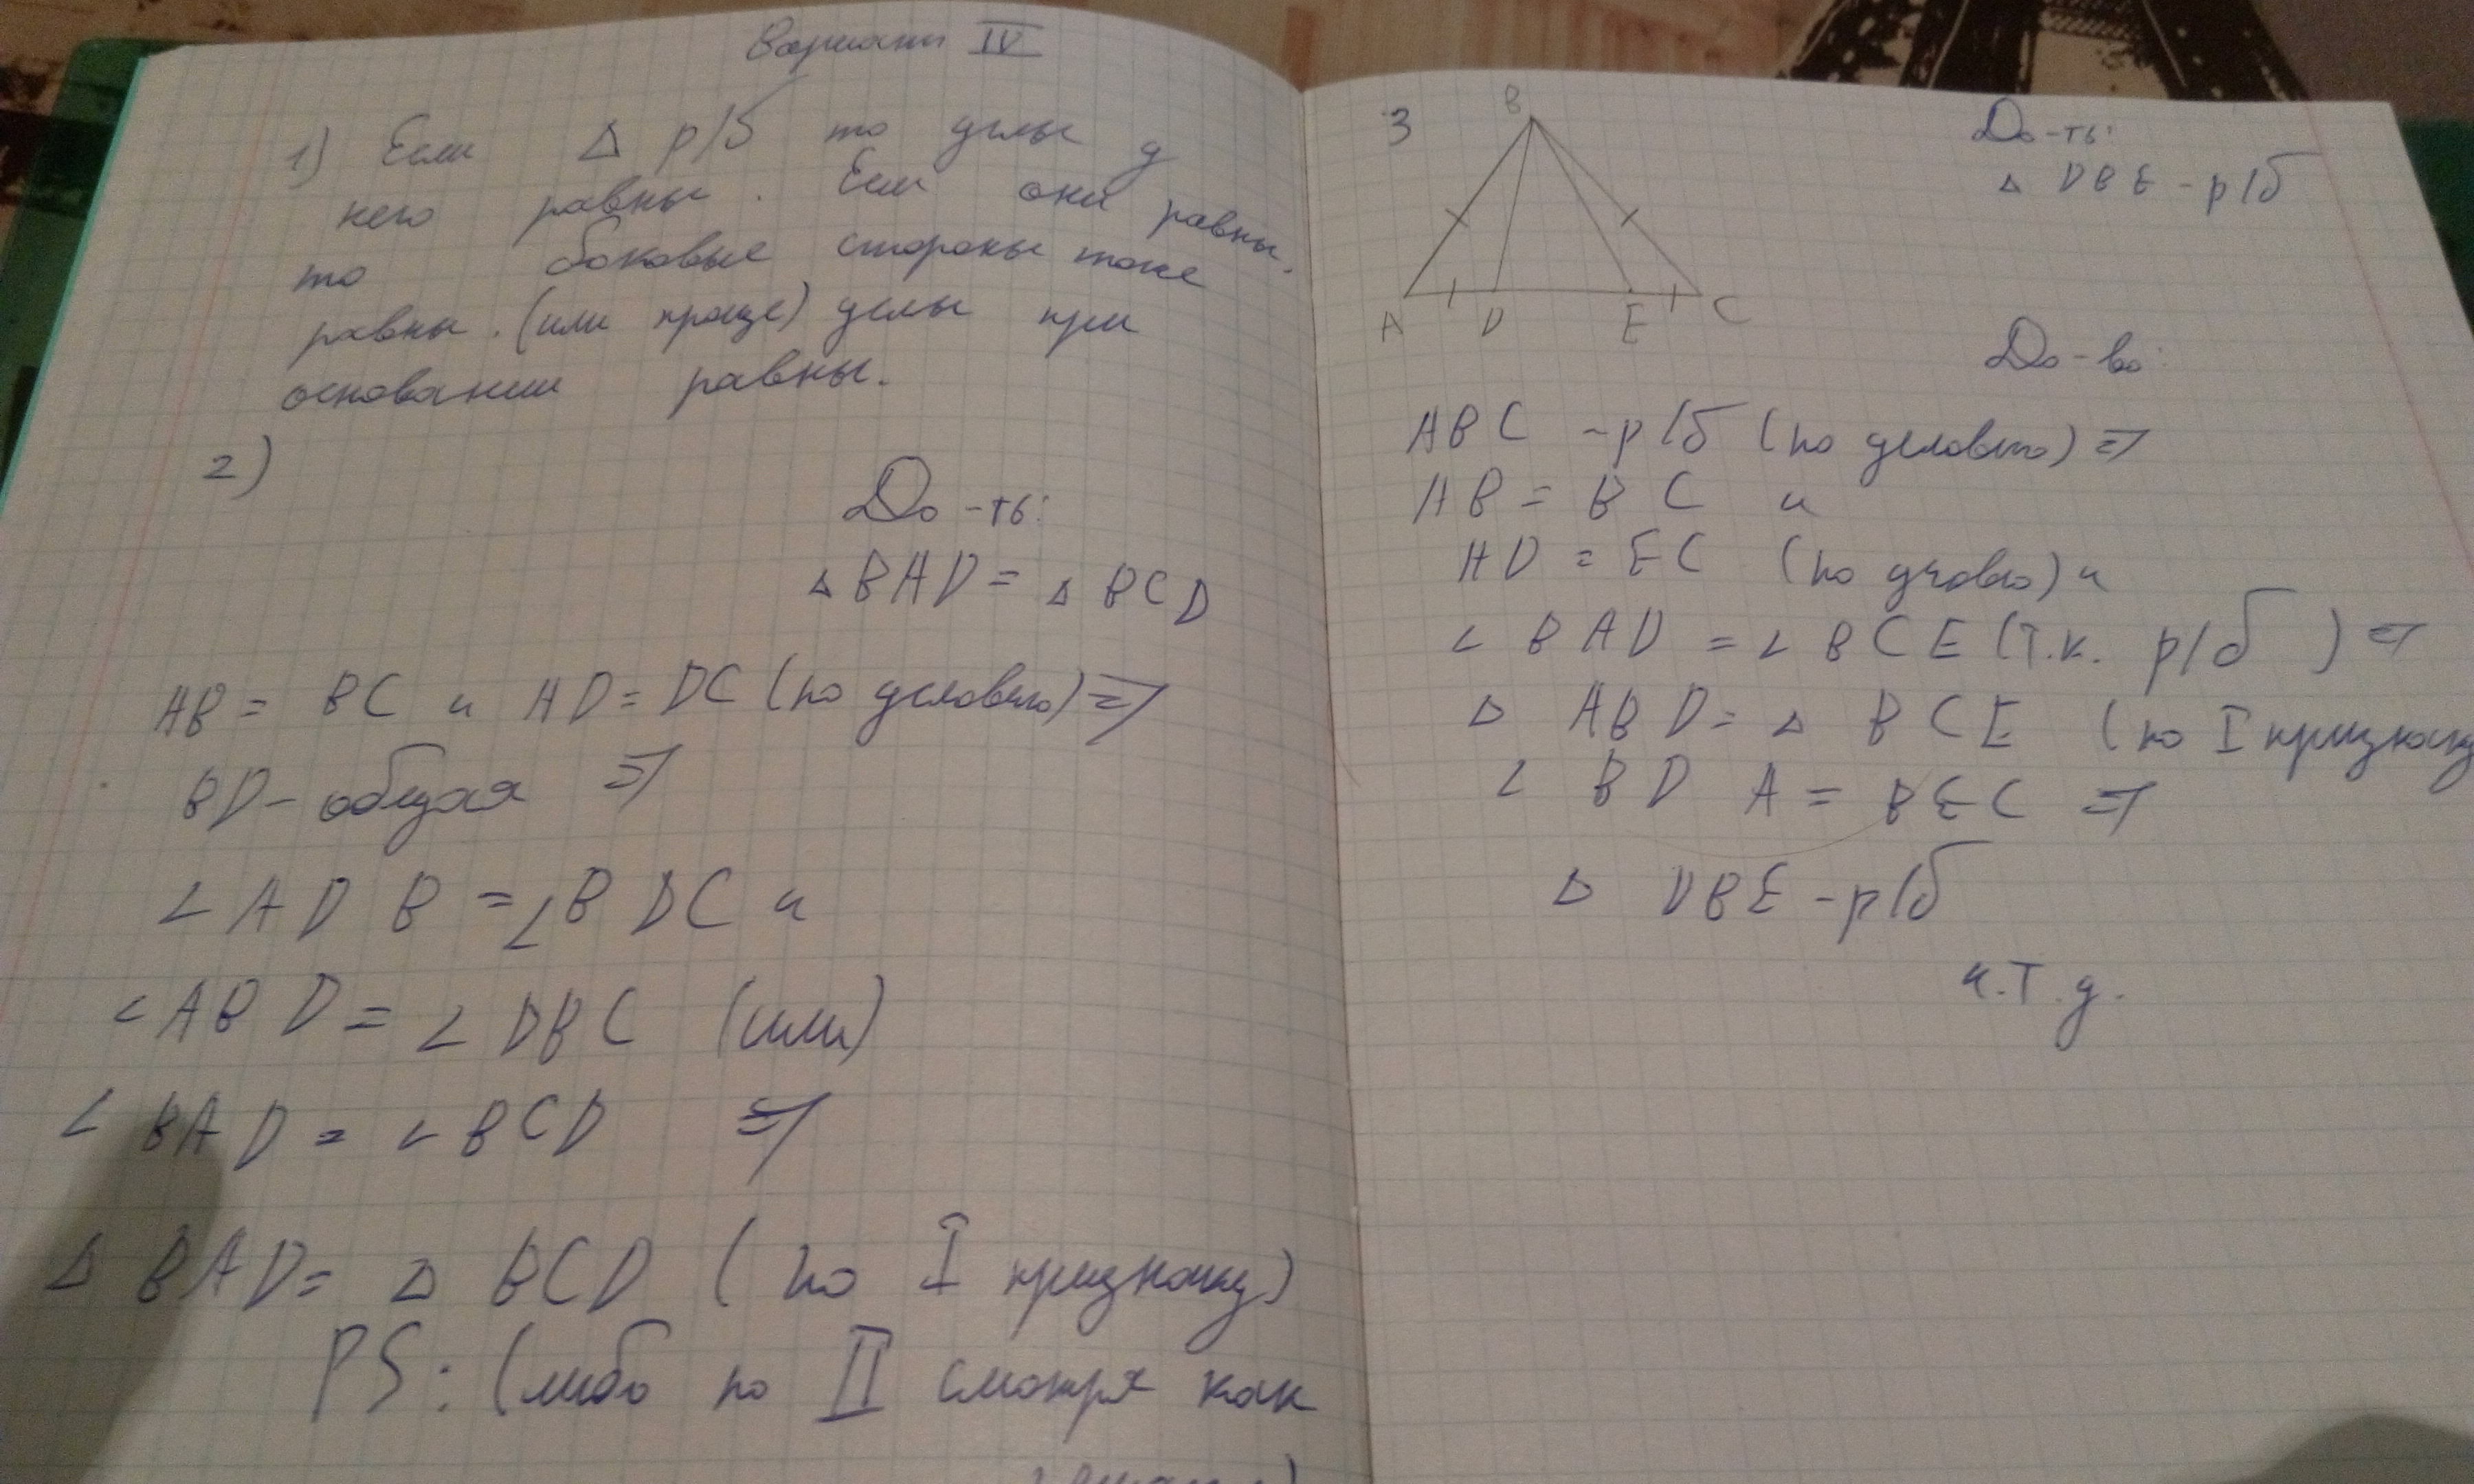 Вариант IV
1) Если Δ р/б то углы у
него равны. Если они равны.
то боковые стороны тоже
равны. (или проще) углы при
основании равны.
2)
До-ть:
Δ BAD = Δ BCD
AB = BC и AD = DC (по условию) ⇒
BD - общая ⇒
∠ ADB = ∠BDC и
∠ABD = ∠DBC (или)
∠BAD = ∠BCD ⇒
Δ BAD = Δ BCD (по I признаку)
PS: (либо по II смотря как
3
B
A D E C
До-ть:
Δ DBE - р/б
До-во:
ABC - р/б (по условию) ⇒
AB = BC и
AD = EC (по условю) и
∠ BAD = ∠ BCE (т.к. р/б) ⇒
Δ ABD = Δ BCE (по I признаку
∠ BDA = BEC ⇒
Δ DBE - р/б
ч.т.д.